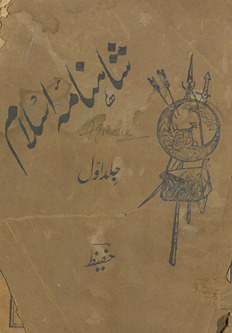 شاہنامہ اسلام
جلد اول
حفیظ